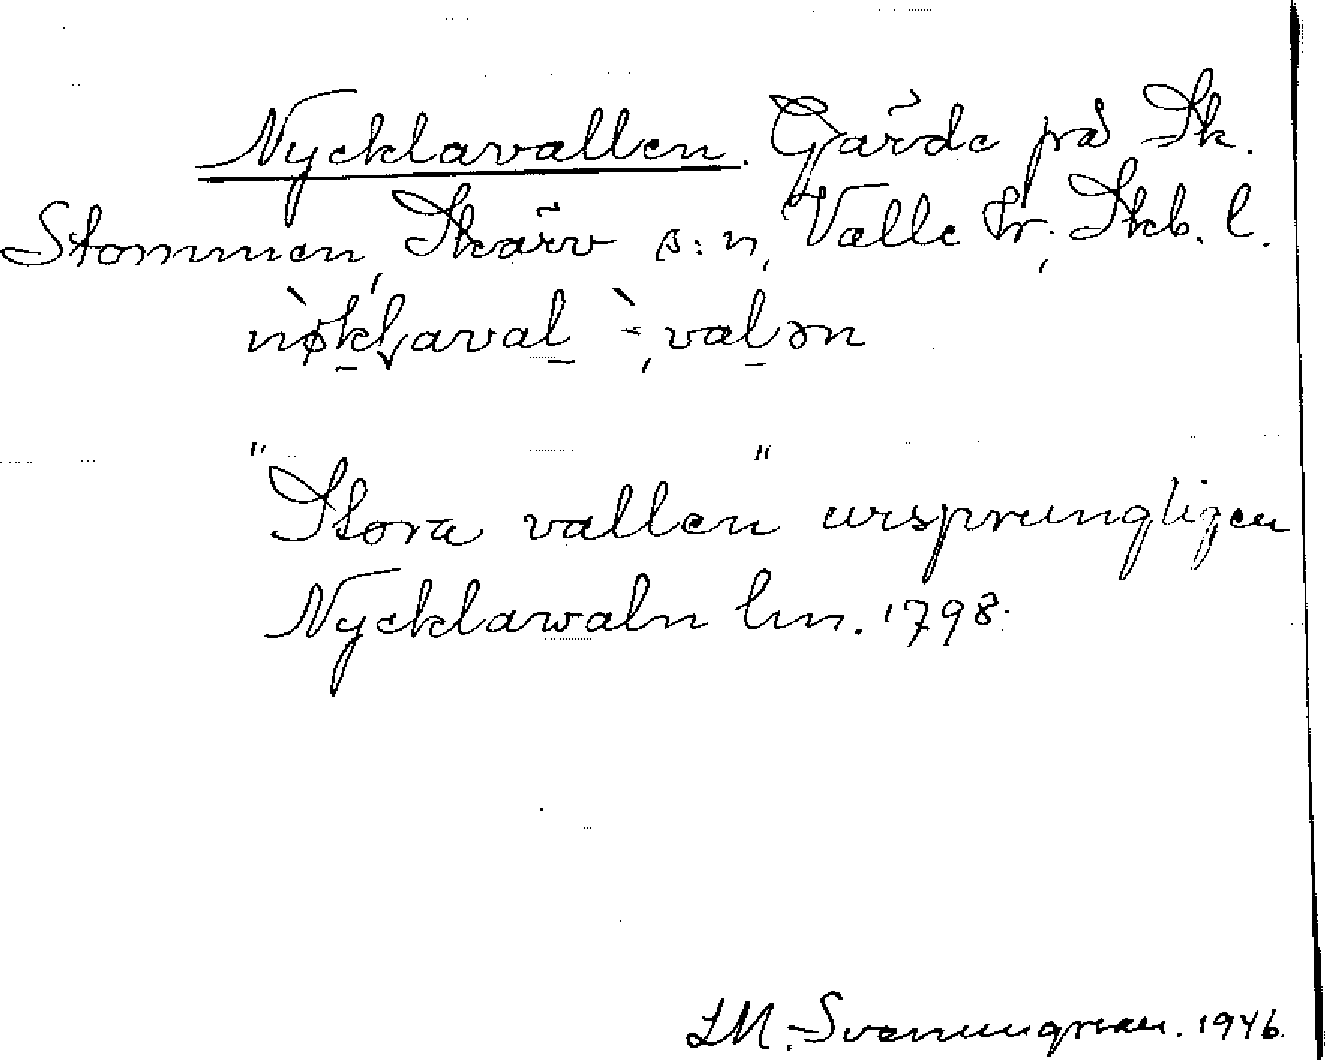 Nycklavallen. Gärde på Sk.
Stommen, Skärv s:n, Valle hr, Skb. l.
"Stora vallen" ursprungligen
Nycklawaln lm. 1798.
LM. Svenungsson. 1946.